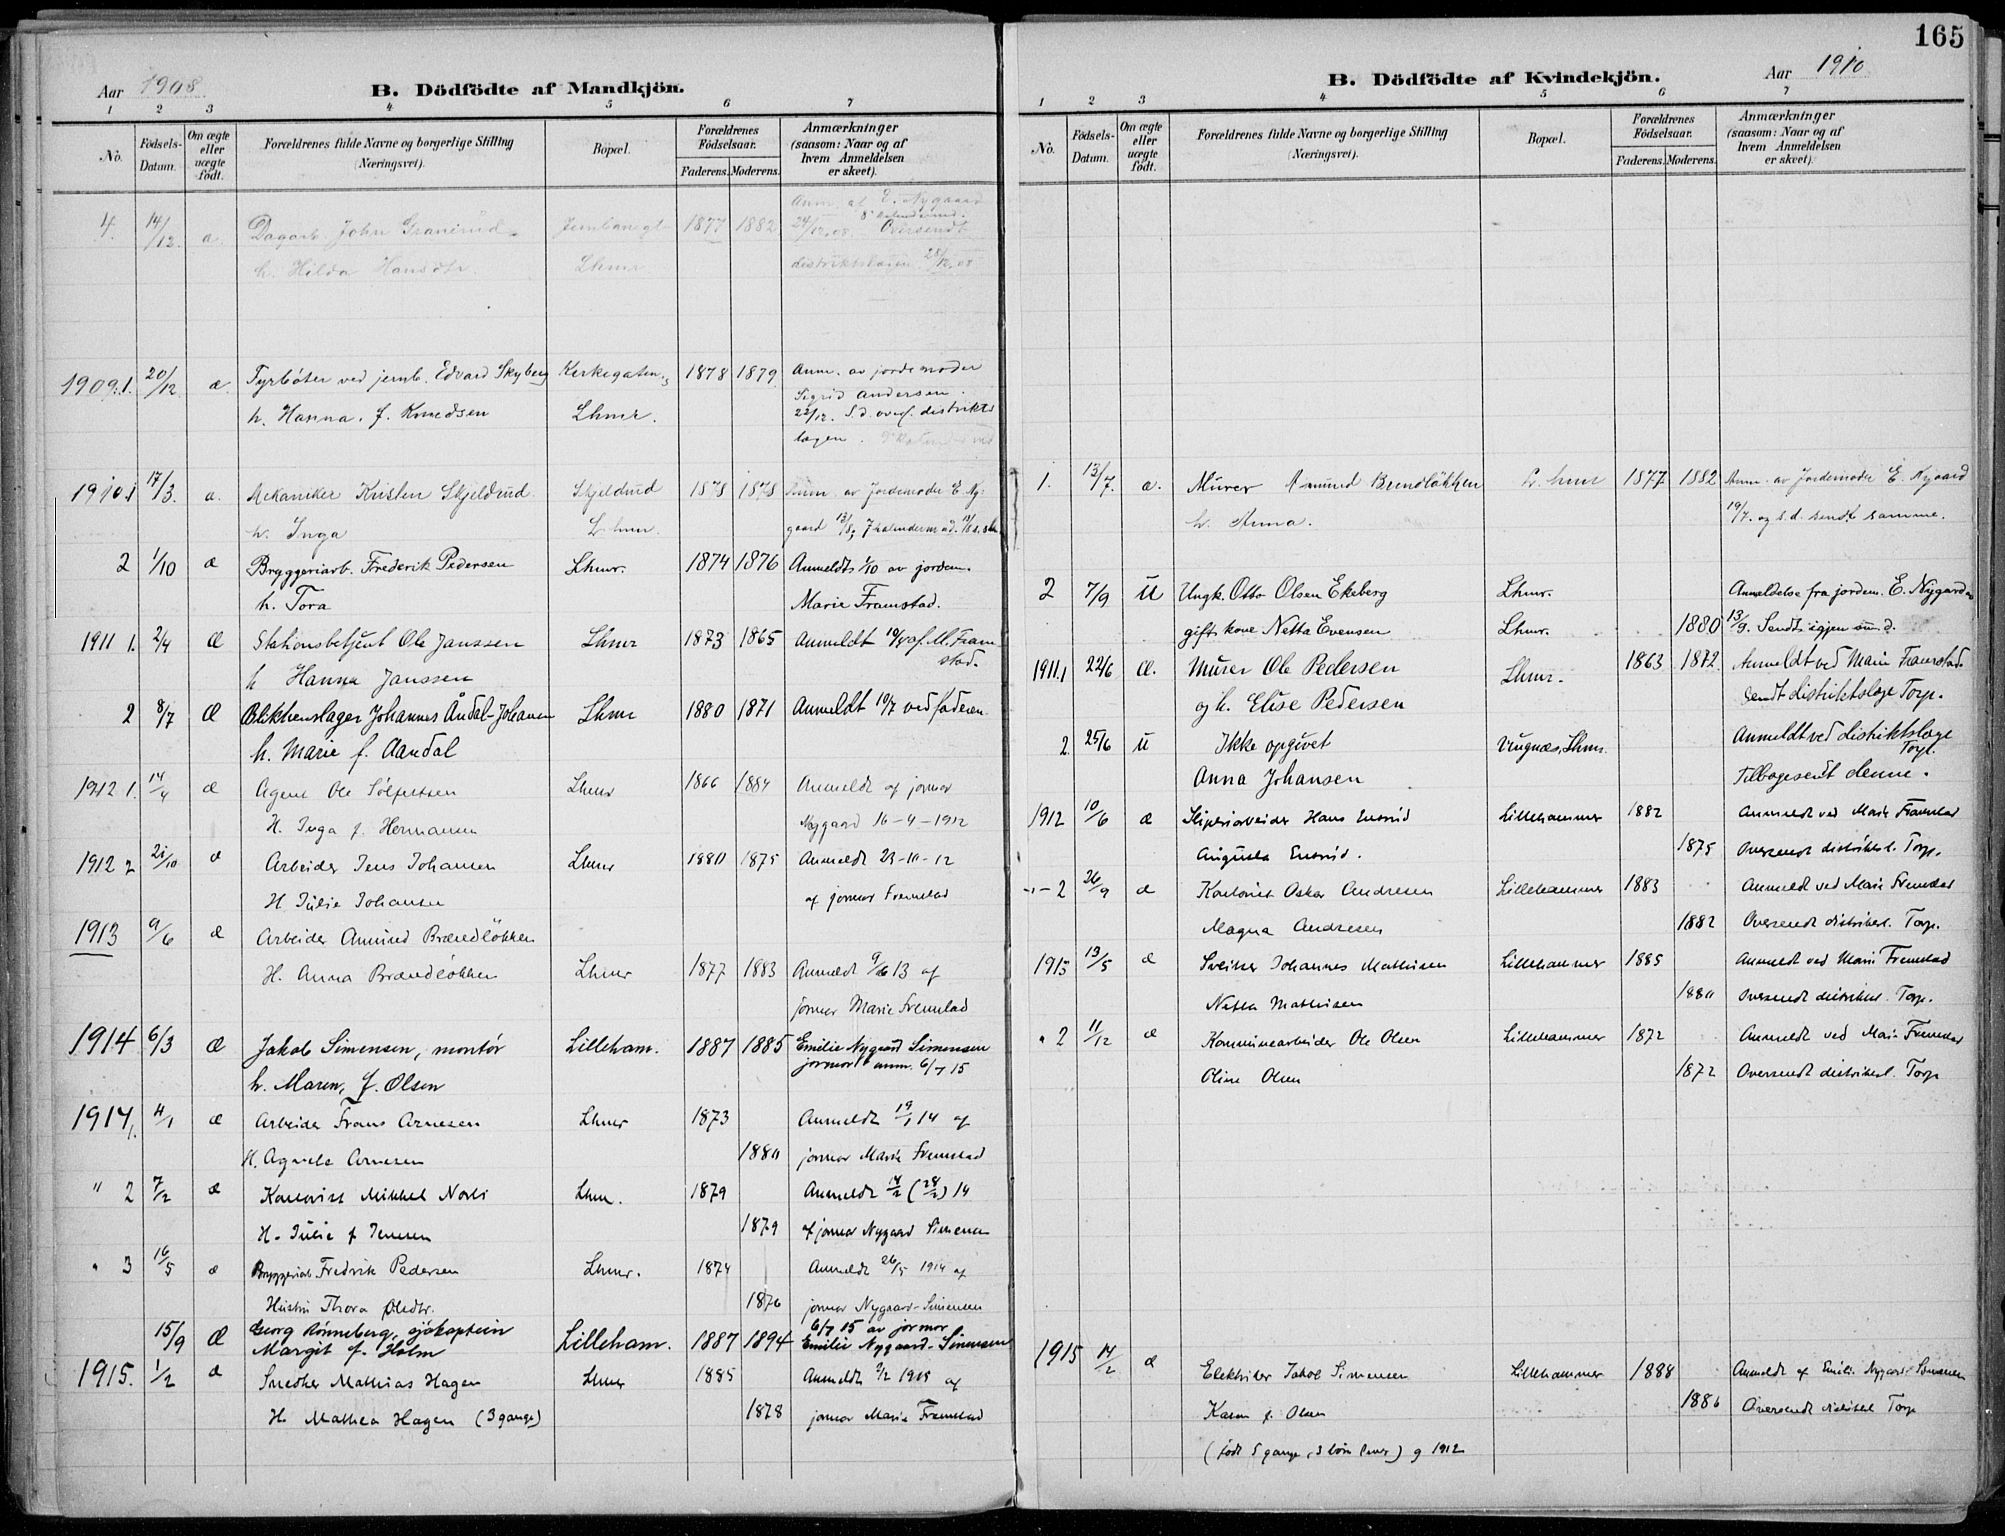 165
Aar 1908.
B. Dödfödte af Mandkjön.
1 2 3 4 5 6 7
No.
Födsels-Datum.
Om ægte eller uægte födt.
Forældrenes fulde Navne og borgerlige Stilling (Næringsvei).
Bopæl.
Forældrenes Födselsaar.
Faderens. Moderens.
Anmærkninger (saasom: Naar og af hvem Anmeldelsen er skeet).
4. 14/12. æ. Dagarb. John Granerud Jernbanegt 1877 1882 Anm. af E. Nygaard
24/12.08. Oversendt
h. Hilda Hansdtr. Lhmr distriktslægen 28/12.08
1909.1. 20/12 æ. Fyrbøter ved jernb. Edvard Skyberg Kirkegaten 1878 1879 Anm. av jordemoder
Sigrid Andersen.
h. Hanna f. Knudsen Lhmr. 22/12. S.d. overs. distrikts
lægen.
1910.1 17/3. æ. Mekaniker Kristen Skjeldrud Skjeldrud 1878 1878 Anm. av Jordemoder E. Ny-
h. Inga Lhmr. gaard
2 1/10 æ Bryggeriarb. Frederik Pedersen Lhmr. 1874 1876 Anmeldts 1/10 av jordem.
h. Tora Marie Framstad.
1911 1. 2/4 Æ Stationsbetjent Ole Janssen Lhmr 1873 1865 Anmeldt af M. Fram
stad.
h Hanna Janssen
2 8/7 Æ Blikkenslager Johannes Åndal-Johansen Lhmr 1880 1871 Anmeldt 10/7 ved faderen
h. Marie f. Aandal
1912 1. 14/4 æ Agent Ole Lhmr 1866 1884 Anmeldt af jormor
H. Inga f. Hermansen Nygaard 16-4-1912
1912 2 21/10 æ Arbeider Jens Johansen Lhmr 1880 1875 Anmeldt 23-10-12
H. Julie Johansen af jormor Fremstad
1913 9/6 æ Arbeider Amund Brændløkken
H. Anna Brændløkken Lhmr 1877 1883 Anmeldt 9/6 13 af
jormor Marie Fremstad
1914 6/3 Æ Jakob Simensen, montør Lilleham. 1887 1885 Emilie Nygaard Simensen
jormor anm. 6/7 15
h. Maren, f. Olsen
1914 1. 4/1 æ Arbeider Frans Arnesen Lhmr 1873 Anmeldt 19/1 14 af
H. Agnete Arnesen 1880 jormor Marie Fremstad
" 2 7/2 æ Kontorist Mikkel Nordli Lhmr. 1879 Anmeldt 14/2 (28/2) 14
H. Julie f Jensen 1879 af jormor Nygaard Simensen
" 3 16/5 æ Bryggeriarb Fredrik Pedersen Lhmr. 1874 Anmeldt 26/5 1914 af
Hustru Thora Olsdtr. 1876 jormor Nygaard-Simensen
15/9 Æ Georg Rønneberg, sjökaptein Lilleham. 1887 1894 6/7 15 av jormor
Margit f. Holm Emilie Nygaard-Simensen
1915. 1/2 æ Snedker Mathias Hagen Lhmr 1885 Anmeldt 9/2 1915 af
H. Mathea Hagen (3 gange) 1878 jormor Marie Fremstad
B. Dödfödte af Kvindekjön.
Aar 1910
1 2 3 4 5 6 7
No.
Födsels-Datum.
Om ægte eller uægte födt.
Forældrenes fulde Navne og borgerlige Stilling (Næringsvei).
Bopæl.
Forældrenes Födselsaar.
Faderens. Moderens.
Anmærkninger (saasom: Naar og af hvem Anmeldelsen er skeet).
1. 13/7. æ. Murer Amund Brendløkken Lhmr 1877 1882 Anm. av Jordemoder E. Nygaard
h. Anna. 19/7. og s.d. sendt samme.
2 7/9 U Ungk. Otto Olsen Ekeberg Lhmr. Anmeldelse fra jordem. E. Nygaard
gift kone Netta Evensen Lhmr. 1880 13/9. Sendt igjen s.d.
1911.1 22/6 Æ. Murer Ole Pedersen Lhmr. 1863 1872. Anmeldt ved Marie Framstad
og h. Elise Pedersen Sendt distriktslæge Torp.
2. 25/6 U Ikke opgivet Vingnæs, Lhmr. Anmeldt ved distriktslæge
Torp.
Anna Johansen Tilbagesendt denne.
1912 10/6 æ Sliperiarbeider Hans Lillehammer 1882 Anmeldt ved Marie Framstad
Augusta 1875 Oversendt distriktsl. Torp.
-"- 2 26/9 æ Kontorist Oskar Andresen Lillehammer 1883 Anmeldt ved Marie Fremstad
Magna Andresen 1882 Oversendt distriktsl. Torp.
1913 13/5 æ Sveitser Johannes Mathisen Lillehammer 1885 Anmeldt ved Marie Fremstad
Netta Mathisen 1880 Oversendt distriktsl. Torp.
" 2 11/12 æ Kommunearbeider Ole Olsen Lillehammer 1872 Anmeldt ved Marie Fremstad
Oline Olsen 1872 Oversendt distriktsl. Torp
1915 14/2 æ Elektriker Jakob Simensen Lillehammer 1888 Anmeldt af Emilie Nygaard Simensen
Karen f. Olsen 1886 Oversendt distriktsl Torp
(født 5 gange, 3 börn lever) g 1912